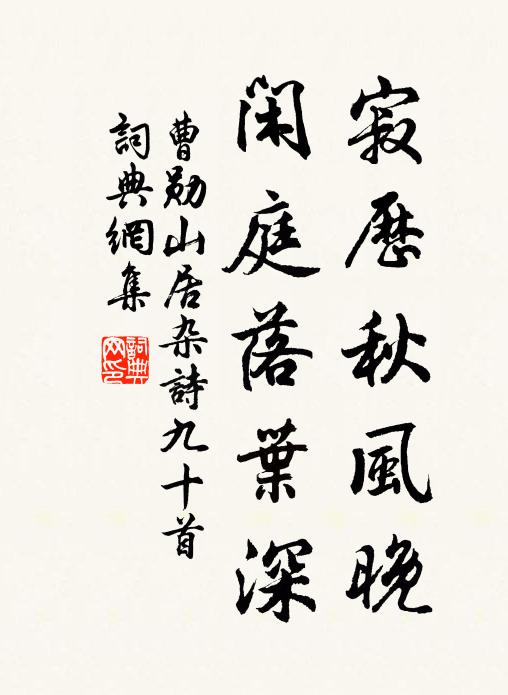 寂歷秋風晚
閑庭落葉深
曹勋山居杂詩九十首
詞典網集
詞典网印